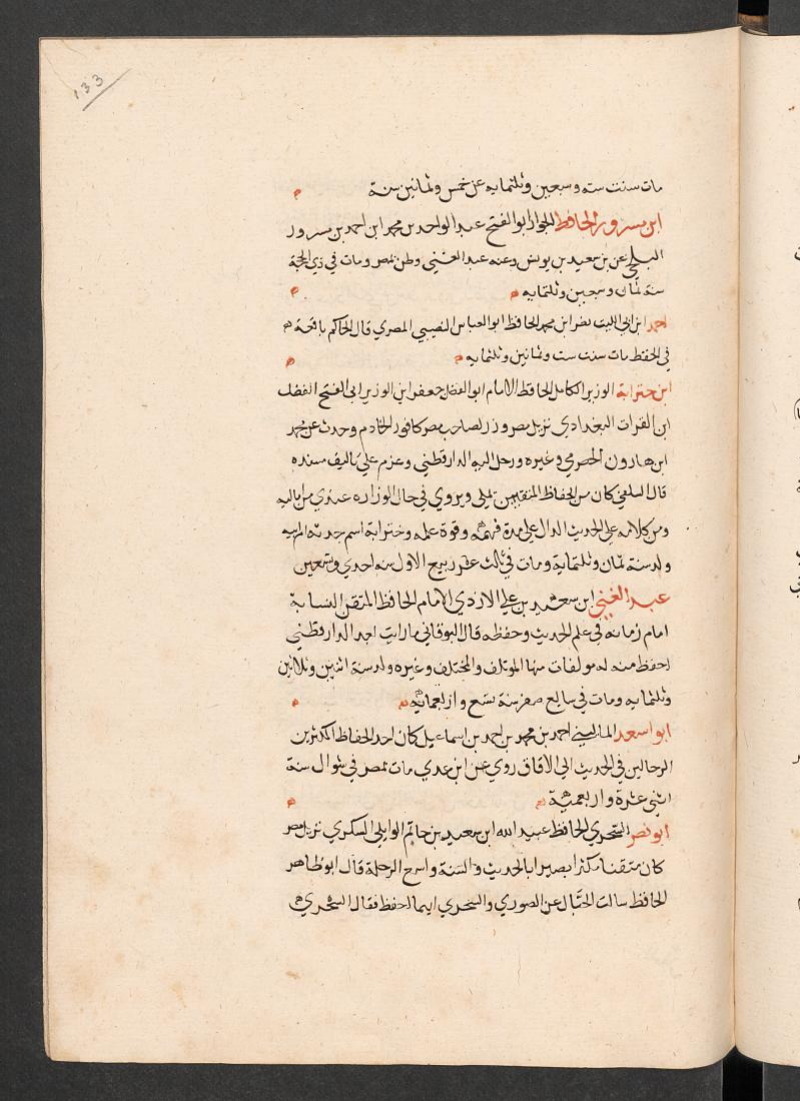 133
مات سنت سته وسبعين وثلثمايه عن خمس وثمانين سنة
ابن مسرور الحافظ الجوار ابو الفتح عبد الواحد بن محمد ابن احمد بن مسرور
البلخي عن بن سعيد بن يونس وعنه عبد الغني وطن بمصر ومات في ذي الحجة
سنة ثمان وسبعين وثلثمايه
احمد ابن ابي الليث نصر ابن محمد الحافظ ابو العباس النصيبي المصري قال الحاكم باقعة
في الحفظ مات سنت ست وثمانين وثلثمايه
ابن حنزابة الوزير الكامل الحافظ الامام ابو الفضل جعفر ابن الوزير ابي الفتح الفضل
ابن الفرات البغدادي نزيل مصر وزر لصاحب مصر كافور الخادم وحدث عن محمد
ابن هارون الحصرمي وغيره ورحل اليه الدارقطني وعزم علي تاليف مسنده
قال السلفي كان من الحفاظ المتقنين يملي ويروي في حال الوزاره عندي من اماليه
ومن كلامه علي الحديث الدال علي حدة فهمه وقوة علمه وخنزابة اسم جدته ام ابيه
ولد سنة ثمان وثلثماية ومات في ثالث عشر ربيع الاول سنه احدي وتسعين
عبد الغني ابن سعيد بن علي الازدي الامام الحافظ المتقن النسابة
امام زمانه في علم الحديث وحفظه قال البوقاني ما رايت بعد الدارقطني
احفظ منه له مولفات منها الموتلف والمختلف وغيره ولد سنة اثنين وثلاثين
وثلثمايه ومات في سابع صفر سنة تسع واربعماية
ابو اسعد الماليني احمد بن محمد بن احمد بن اسماعيل كان احد الحفاظ المكثرين
الرحالين في الحديث الي الافاق روي عن ابن عدي مات بمصر في شوال سنة
اثني عشرة واربعمئة
ابو نصر السجزي الحافظ عبيد الله ابن سعيد بن حاتم الوايلي البكري نزيل مصر
كان متقنا مكثرا بصيرا بالحديث والسنة واسع الرحلة قال ابو طاهر
الحافظ سالت الحبال عن الصوري والسجزي ايهما احفظ فقال السجزي